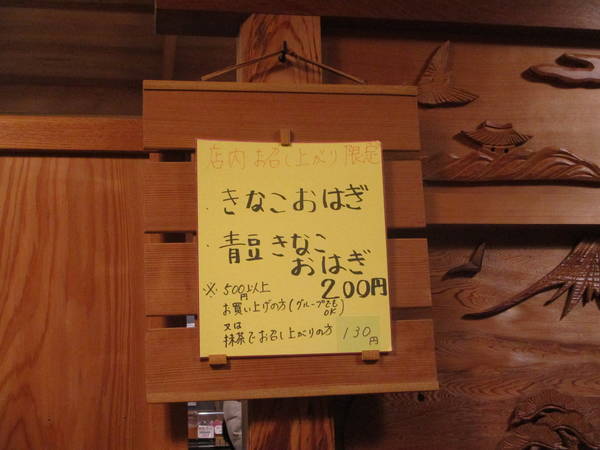 店内お召し上がり限定
・きなこおはぎ
・青豆きなこ
おはぎ
200円
※500円以上
お買い上げの方(グループでもOK)
又は
抹茶でお召し上がりの方 130円